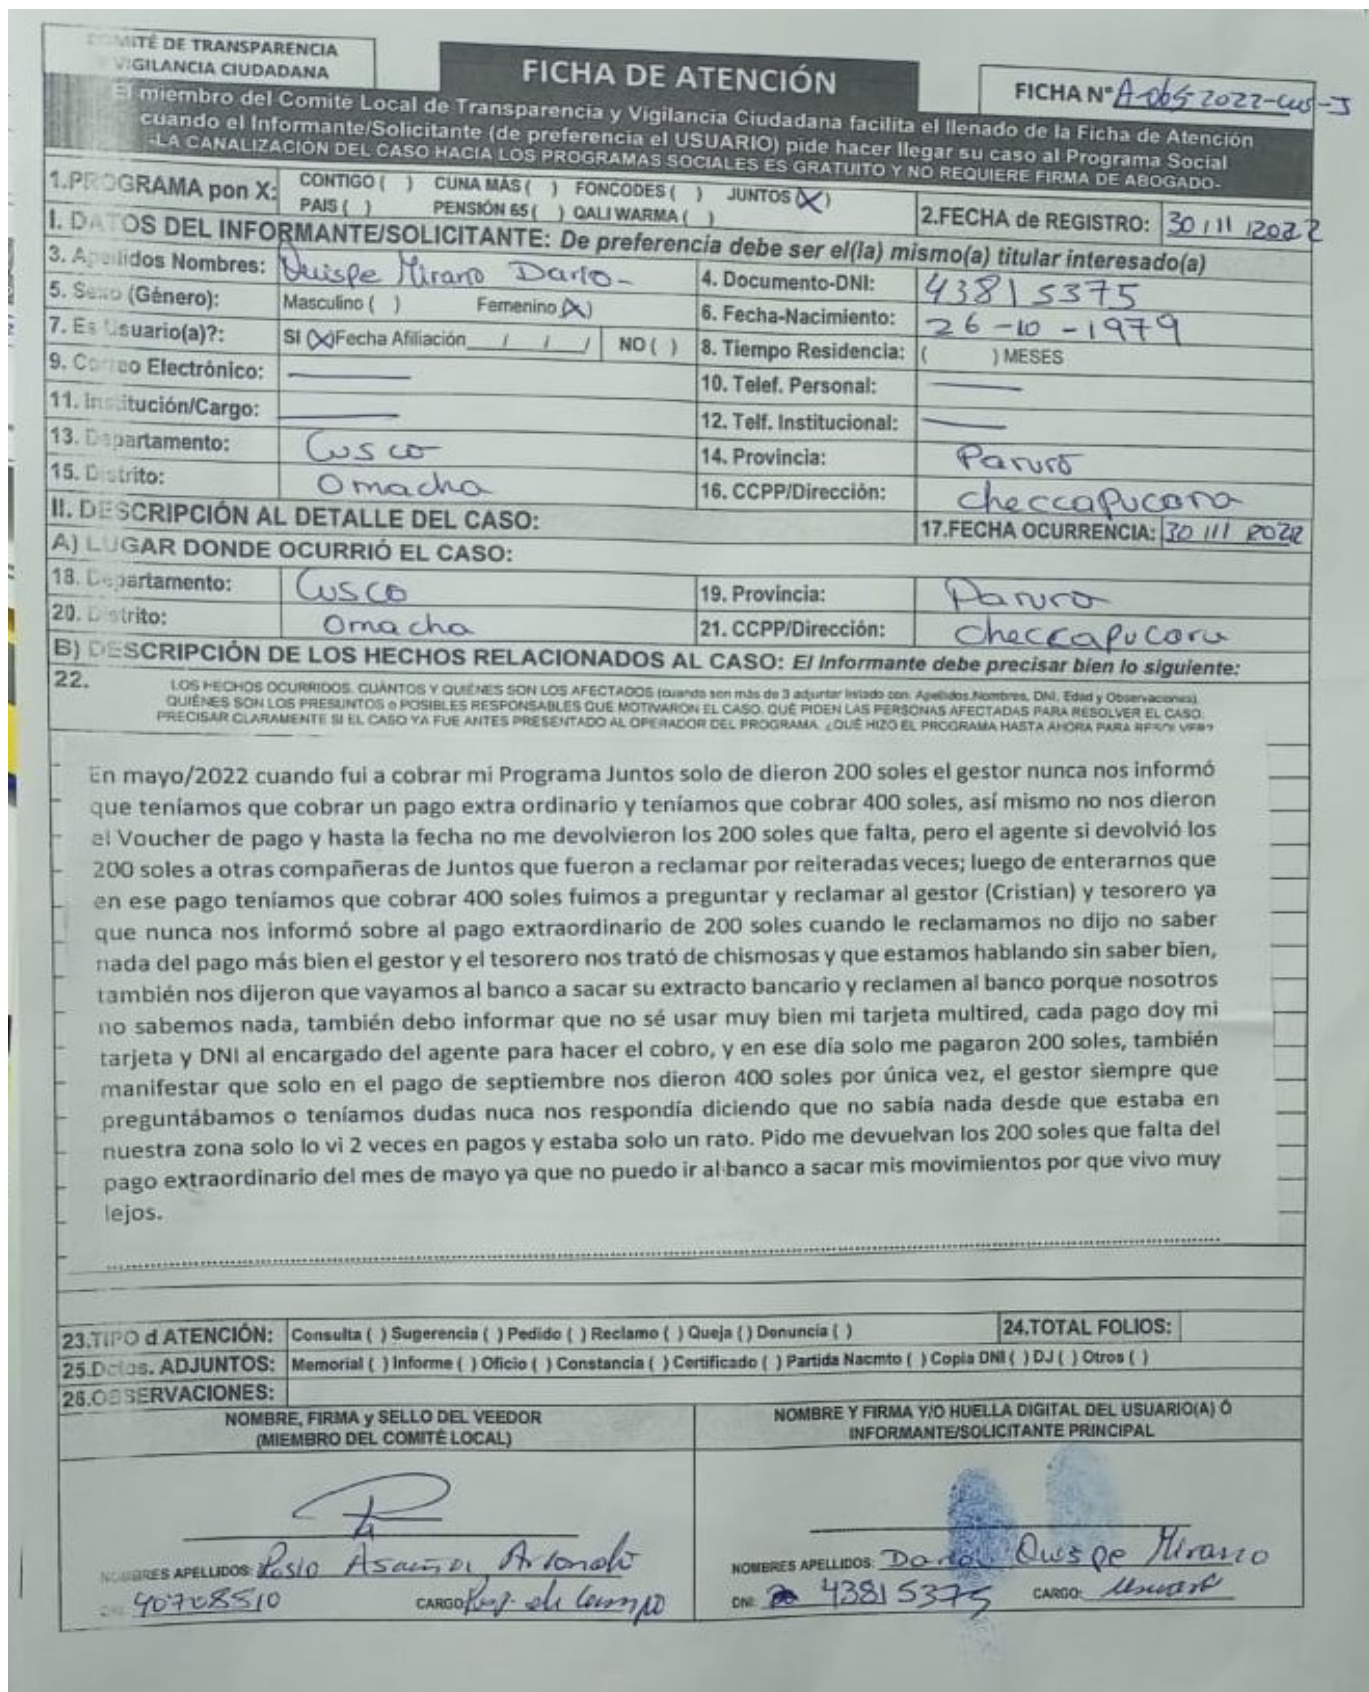 COMITÉ DE TRANSPARENCIA
VIGILANCIA CIUDADANA
FICHA DE ATENCIÓN
FICHA N° A-065-2022-cus-J
El miembro del Comité Local de Transparencia y Vigilancia Ciudadana facilita el llenado de la Ficha de Atención
cuando el Informante/Solicitante (de preferencia el USUARIO) pide hacer llegar su caso al Programa Social
-LA CANALIZACIÓN DEL CASO HACIA LOS PROGRAMAS SOCIALES ES GRATUITO Y NO REQUIERE FIRMA DE ABOGADO-
1.PROGRAMA pon X: CONTIGO ( ) CUNA MÁS ( ) FONCODES ( ) JUNTOS (X)
PAIS ( ) PENSIÓN 65 ( ) QALI WARMA ( )
2.FECHA de REGISTRO: 30/11/2022
I. DATOS DEL INFORMANTE/SOLICITANTE: De preferencia debe ser el(la) mismo(a) titular interesado(a)
3. Apellidos Nombres: Quispe Mirano 4. Documento-DNI: 43815375
5. Sexo (Género): Masculino ( ) Femenino (X) 6. Fecha-Nacimiento: 26-10-1979
7. Es Usuario(a)?: SI (X) Fecha Afiliación / / / NO ( ) 8. Tiempo Residencia: ( ) MESES
9. Correo Electrónico: — 10. Telef. Personal: —
11. Institución/Cargo: — 12. Telf. Institucional: —
13. Departamento: Cusco 14. Provincia: Paruro
15. Distrito: Omacha 16. CCPP/Dirección: Checcapucara
II. DESCRIPCIÓN AL DETALLE DEL CASO: 17.FECHA OCURRENCIA: 30/11/2022
A) LUGAR DONDE OCURRIÓ EL CASO:
18. Departamento: Cusco 19. Provincia: Paruro
20. Distrito: Omacha 21. CCPP/Dirección: Checcapucara
B) DESCRIPCIÓN DE LOS HECHOS RELACIONADOS AL CASO: El Informante debe precisar bien lo siguiente:
22. LOS HECHOS OCURRIDOS. CUÁNTOS Y QUIÉNES SON LOS AFECTADOS (cuando son más de 3 adjuntar listado con: Apellidos,Nombres, DNI, Edad y Observaciones).
QUIÉNES SON LOS PRESUNTOS o POSIBLES RESPONSABLES QUE MOTIVARON EL CASO. QUÉ PIDEN LAS PERSONAS AFECTADAS PARA RESOLVER EL CASO.
PRECISAR CLARAMENTE SI EL CASO YA FUE ANTES PRESENTADO AL OPERADOR DEL PROGRAMA. ¿QUÉ HIZO EL PROGRAMA HASTA AHORA PARA RESOLVER?
En mayo/2022 cuando fui a cobrar mi Programa Juntos solo de dieron 200 soles el gestor nunca nos informó
que teníamos que cobrar un pago extra ordinario y teníamos que cobrar 400 soles, así mismo no nos dieron
el Voucher de pago y hasta la fecha no me devolvieron los 200 soles que falta, pero el agente si devolvió los
200 soles a otras compañeras de Juntos que fueron a reclamar por reiteradas veces; luego de enterarnos que
en ese pago teníamos que cobrar 400 soles fuimos a preguntar y reclamar al gestor (Cristian) y tesorero ya
que nunca nos informó sobre al pago extraordinario de 200 soles cuando le reclamamos no dijo no saber
nada del pago más bien el gestor y el tesorero nos trató de chismosas y que estamos hablando sin saber bien,
también nos dijeron que vayamos al banco a sacar su extracto bancario y reclamen al banco porque nosotros
no sabemos nada, también debo informar que no sé usar muy bien mi tarjeta multired, cada pago doy mi
tarjeta y DNI al encargado del agente para hacer el cobro, y en ese día solo me pagaron 200 soles, también
manifestar que solo en el pago de septiembre nos dieron 400 soles por única vez, el gestor siempre que
preguntábamos o teníamos dudas nuca nos respondía diciendo que no sabía nada desde que estaba en
nuestra zona solo lo vi 2 veces en pagos y estaba solo un rato. Pido me devuelvan los 200 soles que falta del
pago extraordinario del mes de mayo ya que no puedo ir al banco a sacar mis movimientos por que vivo muy
lejos.
23.TIPO d ATENCIÓN: Consulta ( ) Sugerencia ( ) Pedido ( ) Reclamo ( ) Queja ( ) Denuncia ( ) 24.TOTAL FOLIOS:
25.Dctos. ADJUNTOS: Memorial ( ) Informe ( ) Oficio ( ) Constancia ( ) Certificado ( ) Partida Nacmto ( ) Copia DNI ( ) DJ ( ) Otros ( )
26.OBSERVACIONES:
NOMBRE, FIRMA y SELLO DEL VEEDOR
(MIEMBRO DEL COMITÉ LOCAL)
NOMBRE Y FIRMA Y/O HUELLA DIGITAL DEL USUARIO(A) Ó
INFORMANTE/SOLICITANTE PRINCIPAL
NOMBRES APELLIDOS:
DNI: 40708510 CARGO: Resp. de Campo
NOMBRES APELLIDOS: Quispe Mirano
DNI: 43815375 CARGO: Usuaria